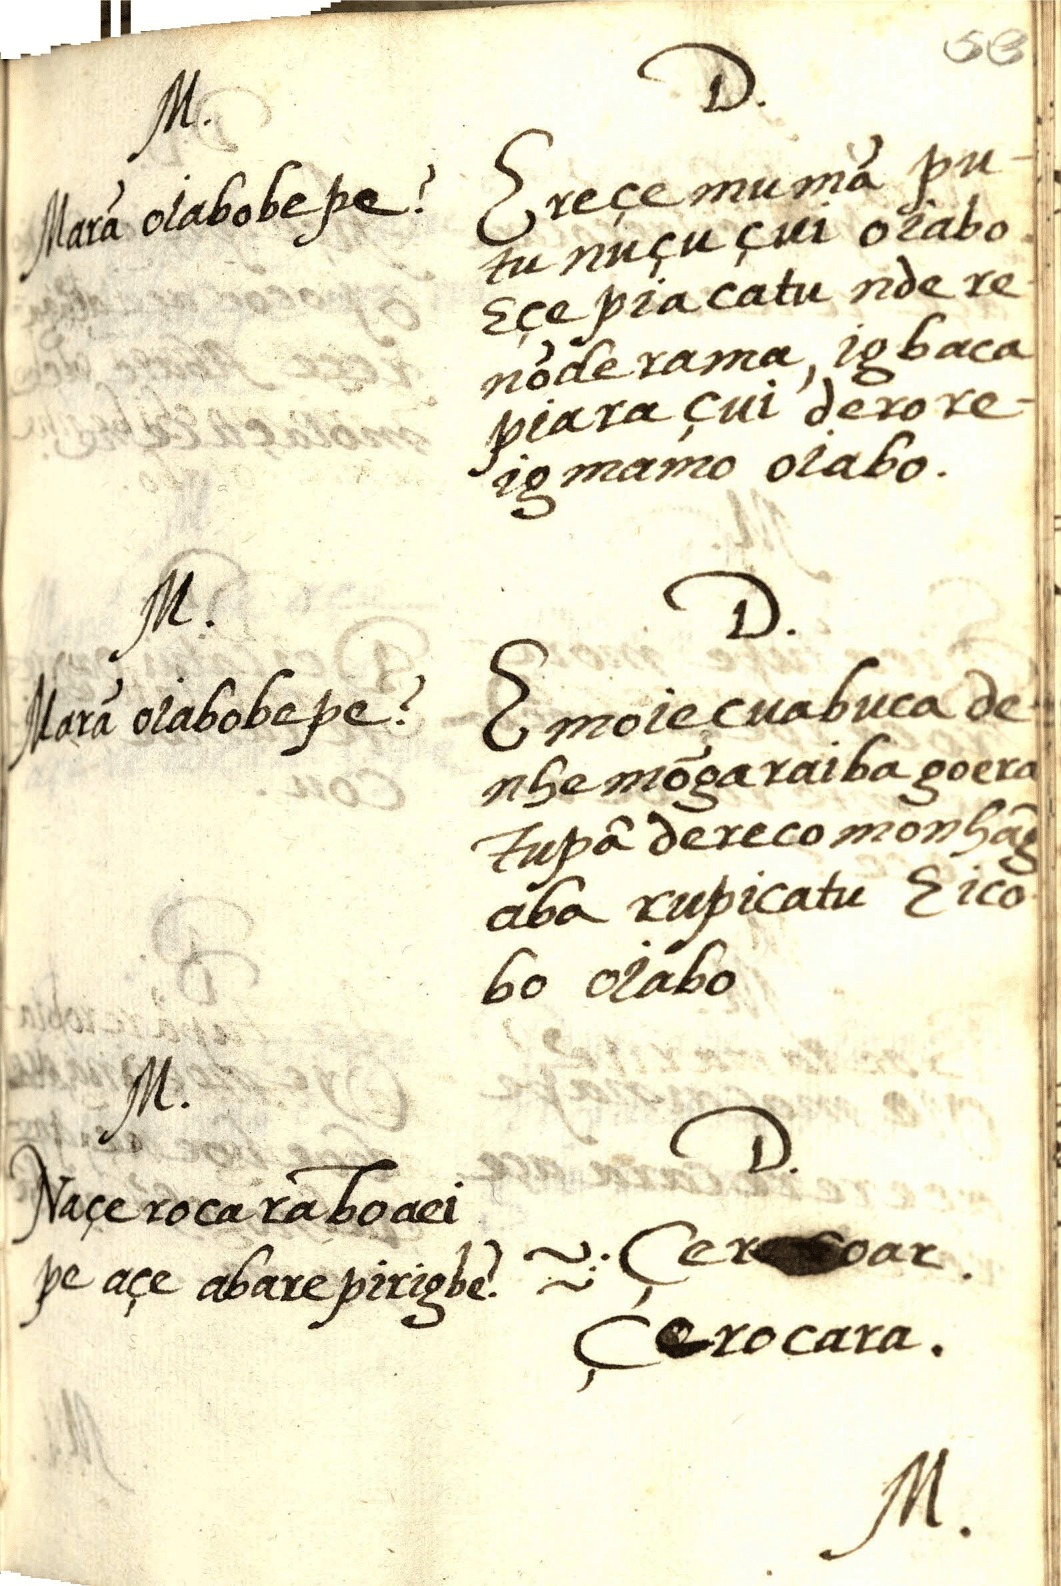 58
M.
Marã oiabobe pe?
D.
Ereçe mumã pu-
tu nuçu çui oiabo
Eçe piacatu nde re
nõde rama, igbaca
piara çui derore-
igmamo oiabo.
M.
Marã oiabobe pe?
D.
Emoieçuabuca de
nhe mõgaraiba goera
Tupã dereco monhãg
aba rupicatu Eico
bo oiabo
M.
Naçe roca rãboaei
pe açe abare pirigbe?
D.
oar.
Çerocara.
M.